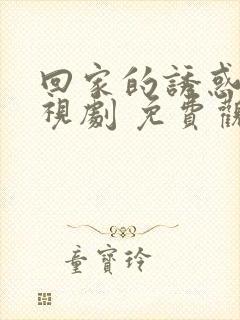 回家的誘惑
視劇 免費觀
童寶玲